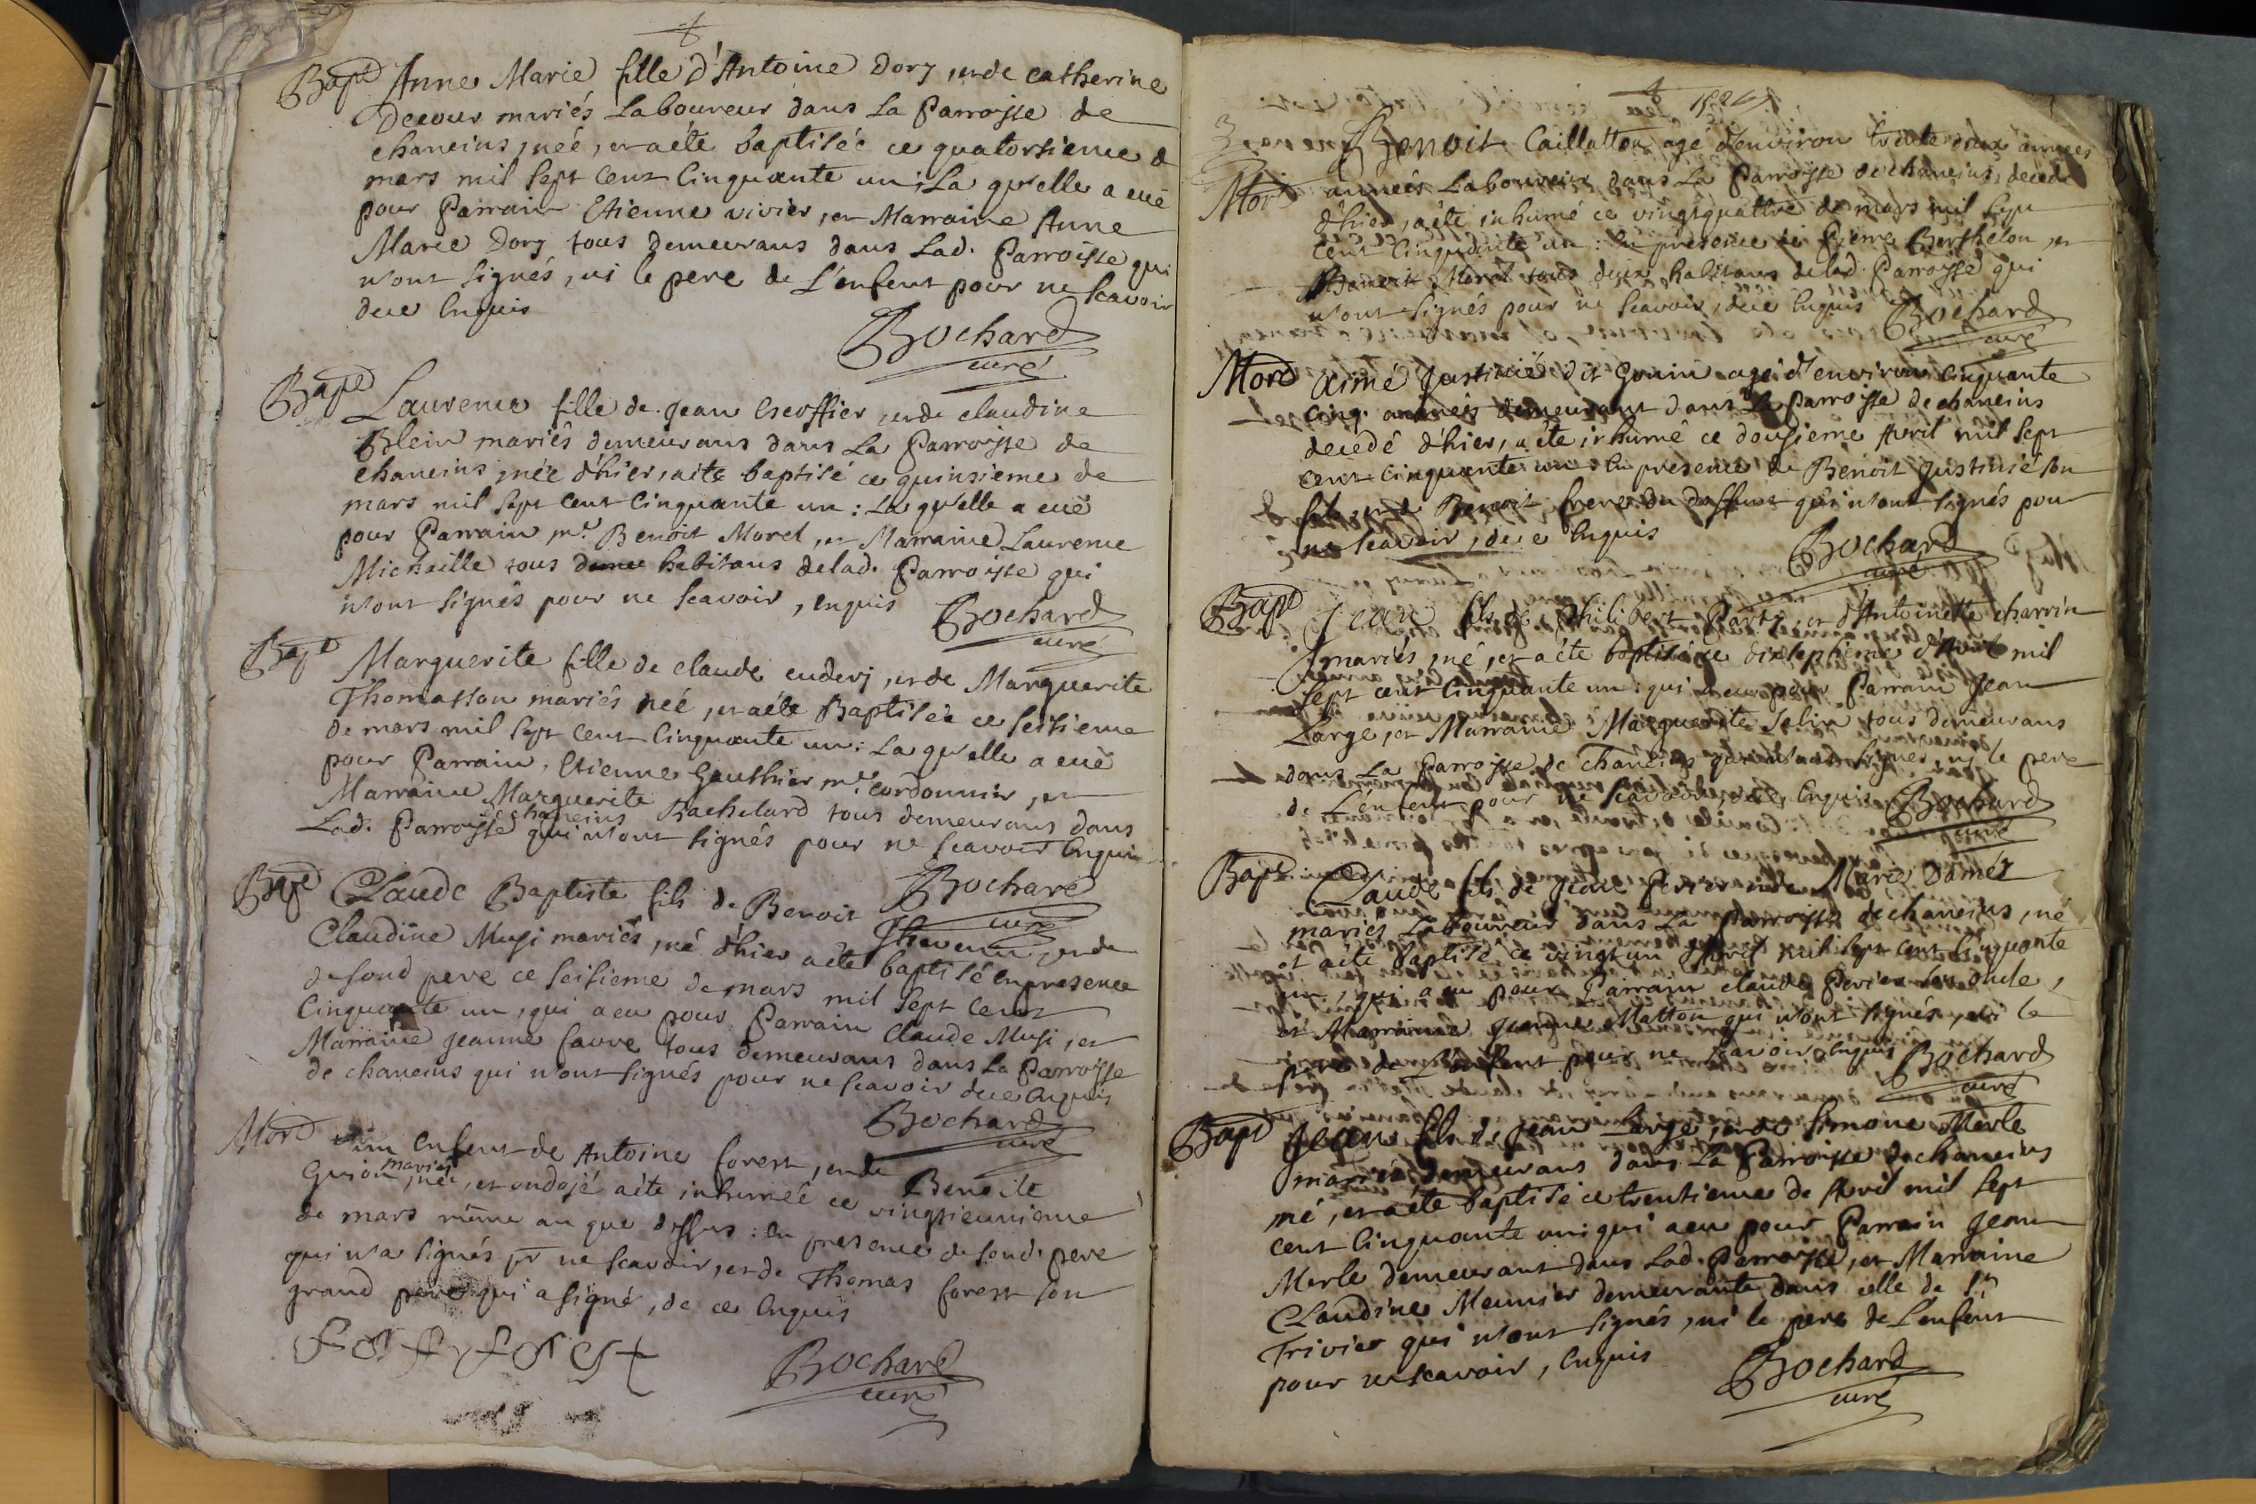 Bapt Anne Marie fille d'Antoine Dory, et de catherine
Decour mariés Laboureur dans La Parroisse de
chaneins, née, et aété baptisée ce quatorsieme de
mars mil sept cent Cinquante un; La qu'elle a eüe
pour Parrain Etienne vivier, et Marraine Anne
Marie Dory tous demeurans dans Lad. Parroisse qui
n'ont signés, ni le pere de L'enfent pour ne scavoir
dece Enquis
Bochard
curé
Bapt Laurence fille de Jean Escoffier, et de claudine
Blein mariés demeurans dans La Parroisse de
chaneins, née d'hier, aété baptisé ce quinsieme de
mars mil sept cent Cinquante un : La qu'elle a eüe
pour Parrain, mr. Benoit Morel, et Marraine Laurence
Michaille tous habitans delad. Parroisse qui
n'ont signés pour ne scavoir, enquis
Bochard
curé
Bapt Marguerite fille de claude cuderj, et de Marguerite
Thomasson mariés née, et aété Baptisée ce seisieme
de mars mil sept cent Cinquante un : La qu'elle a eüe
pour Parrain, Etienne Gauthier mr. cordonnier, et
Marraine Marguerite Bachelard tous demeurans dans
Lad. Parroisse chaneins qui n'ont signés pour ne scavoir Enquis
Bochard
curé
Bapt Claude Baptiste fils de Benoit Thevenin, et de
Claudine Musi mariés, né d'hier aété baptisé en presence
de sond pere ce seisieme de mars mil sept cent
Cinquante un, qui a eu pour Parrain Claude Musi, et
Marraine Jeanne favre tous demeurans dans La Parroisse
de chaneins qui n'ont signés pour ne scavoir dece Enquis
Bochard
curé
Mort un Enfent de Antoine forest, et de Benoite
Guion mariés, née, et ondojé aété inhumée ce
de mars même an que dessus : en presence de sond. pere
qui n'a signés pr ne scavoir, et de Thomas forest son
grand pere qui a signé, de ce Enquis
forest
Bochard
curé
Benoit Caillatton agé d'environ trente deux années
Mort années Laboureur dans La Parroisse de chaneins, decedé
d'hier, aété inhumé ce vingtquattre de mars mil sept
cent Cinquante un : En presence de Pierre Berthelon, et
Benoit Morel tous deux habitans delad. Parroisse qui
n'ont signés pour ne scavoir, dece Enquis
Bochard
curé
Mort aimé Justinié dit Gonin agé d'environ cinquante
cinq années demeurant dans La Parroisse de chaneins
decedé d'hier, a été inhumé ce dousieme Avril mil sept
cent cinquante un : En presence de Benoit Justinié son
fils, et de Benoit frere du deffunt qui n'ont signés pour
ne scavoir, de ce Enquis
Bochard
curé
Bapt Jean fils de Philibert Party, et d'Antoinette charrin
mariés, né, et aété baptisé ce dixseptieme d'Avril mil
sept cent Cinquante un : qui a eu pour Parrain Jean
Large, et Marraine Marguerite Selin tous demeurans
dans La Parroisse de Chaneins qui n'ont signés, ni le pere
de L'enfent pour ne scavoir, dece, Enquis
Bochard
curé
Bapt Claude fils de Jean Perier et de Marie Damér
mariés Laboureur dans La Parroisse de chaneins, né
et aété baptisé ce vingt un d'Avril mil sept cent Cinquante
un, qui a eu pour Parrain claude Perier son oncle,
et Marraine Jeanne Matton qui n'ont signés, ni le
pere de L'enfent pour ne scavoir, Enquis
Bochard
curé
Bapt Jean fils de Jean Large, et de Simone Merle
mariés demeurans dans La Parroisse de chaneins
né, et aété baptisé ce trentieme de Avril mil sept
cent Cinquante un : qui a eu pour Parrain Jean
Merle demeurant dans Lad. Parroisse, et Marraine
Claudine Meunier demeurante dans celle de St
Trivier qui n'ont signés, ni le pere de L'enfent
pour ne scavoir, Enquis
Bochard
curé